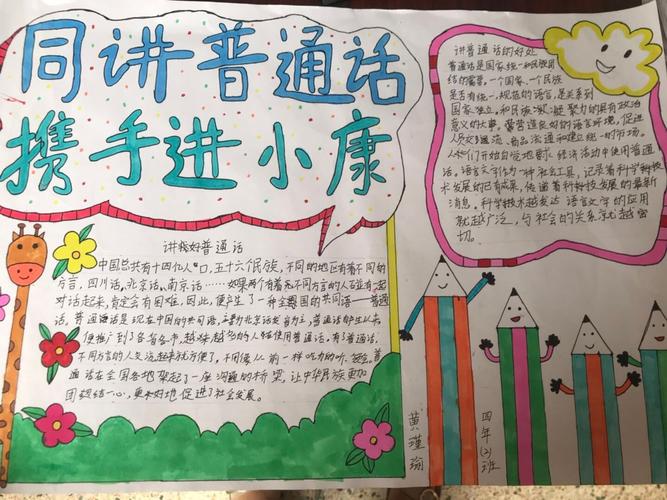 同讲普通话
携手进小康
讲普通话的好处
普通话是国家统一和民族团
结的需要。一个国家、一个民族
是否有统一、规范的语言,是关系到
国家独立。和民族凝聚力的具有政治
意义的大事。营造良好的语言环境,促进
人员交流、商品流通和建立统一的市场。
人们开始自觉地要求经济活动中使用普通
话。语言文字作为一种社会工具,记录着科学科技
术发展的已有成果,传递着科技发展的最新
消息。科学技术越发达 语言文字的应用
就越广泛,与社会的关系就越密
切。
讲好普通话
中国总共有十四亿人口,五十六个民族,不同的地区有着不同的
方言,四川话,北京话,南京话……如果两个有着不同方言的人
对话起来,肯定会有困难,因此,便产生了一种全国的共同语——普通
话。普通话是现在中国的共同语,
便推广到了各省各市,越来越多的人能使用普通话。有了普通话,
不同方言的人交流起来就方便了,不同像从前一样吃力的听、
通话在全国各地架起了一座沟通的桥梁,让中华民族更加
团结一心,更好地促进了社会发展。
黄瑾瑜
四年(2)班